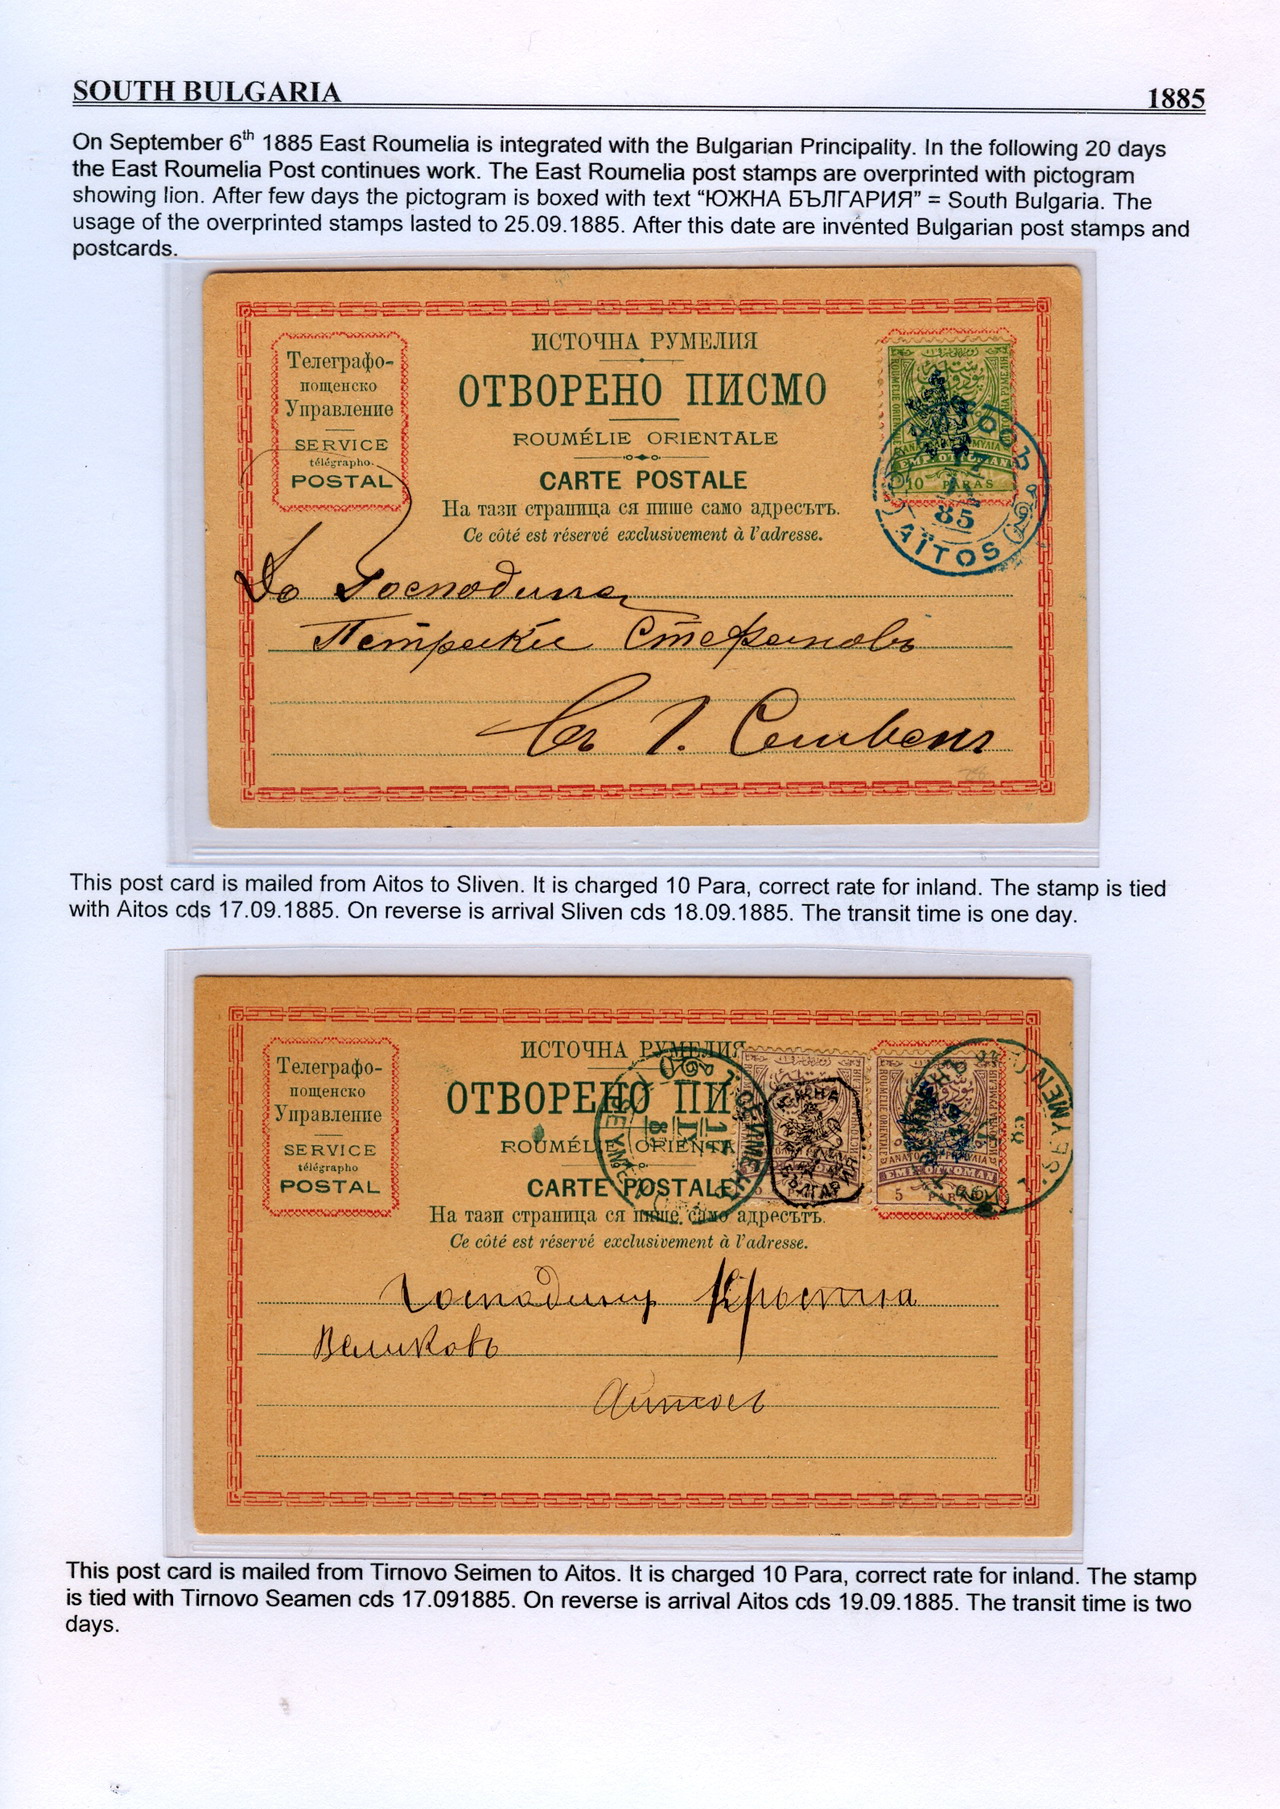 SOUTH BULGARIA
1885
On September 6th 1885 East Roumelia is integrated with the Bulgarian Principality. In the following 20 days
the East Roumelia Post continues work. The East Roumelia post stamps are overprinted with pictogram
showing lion. After few days the pictogram is boxed with text “ЮЖНА БЪЛГАРИЯ” = South Bulgaria. The
usage of the overprinted stamps lasted to 25.09.1885. After this date are invented Bulgarian post stamps and
postcards.
Телеграфо-
пощенско
Управление
SERVICE
télégrapho-
POSTAL
ИСТОЧНА РУМЕЛИЯ
ОТВОРЕНО ПИСМО
ROUMÉLIE ORIENTALE
CARTE POSTALE
На тази страница ся пише само адресътъ.
Ce côté est réservé exclusivement à l'adresse.
EMP. OTTOMAN
10 PARAS
85
AÏTOS
До Господина
Петраки Стефановъ
Въ Г. Сливенъ
This post card is mailed from Aitos to Sliven. It is charged 10 Para, correct rate for inland. The stamp is tied
with Aitos cds 17.09.1885. On reverse is arrival Sliven cds 18.09.1885. The transit time is one day.
Телеграфо-
пощенско
Управление
SERVICE
télégrapho
POSTAL
ИСТОЧНА РУМЕЛИЯ
ОТВОРЕНО ПИ
ROUMÉLIE ORIENTA
CARTE POSTALE
На тази страница ся пише само адресътъ.
Ce côté est réservé exclusivement à l'adresse.
ЮЖНА
БЪЛГАРИЯ
EMP. OTTOMAN
5 PARAS
Господину Кръстю
Великовъ
Айтосъ
This post card is mailed from Tirnovo Seimen to Aitos. It is charged 10 Para, correct rate for inland. The stamp
is tied with Tirnovo Seamen cds 17.091885. On reverse is arrival Aitos cds 19.09.1885. The transit time is two
days.